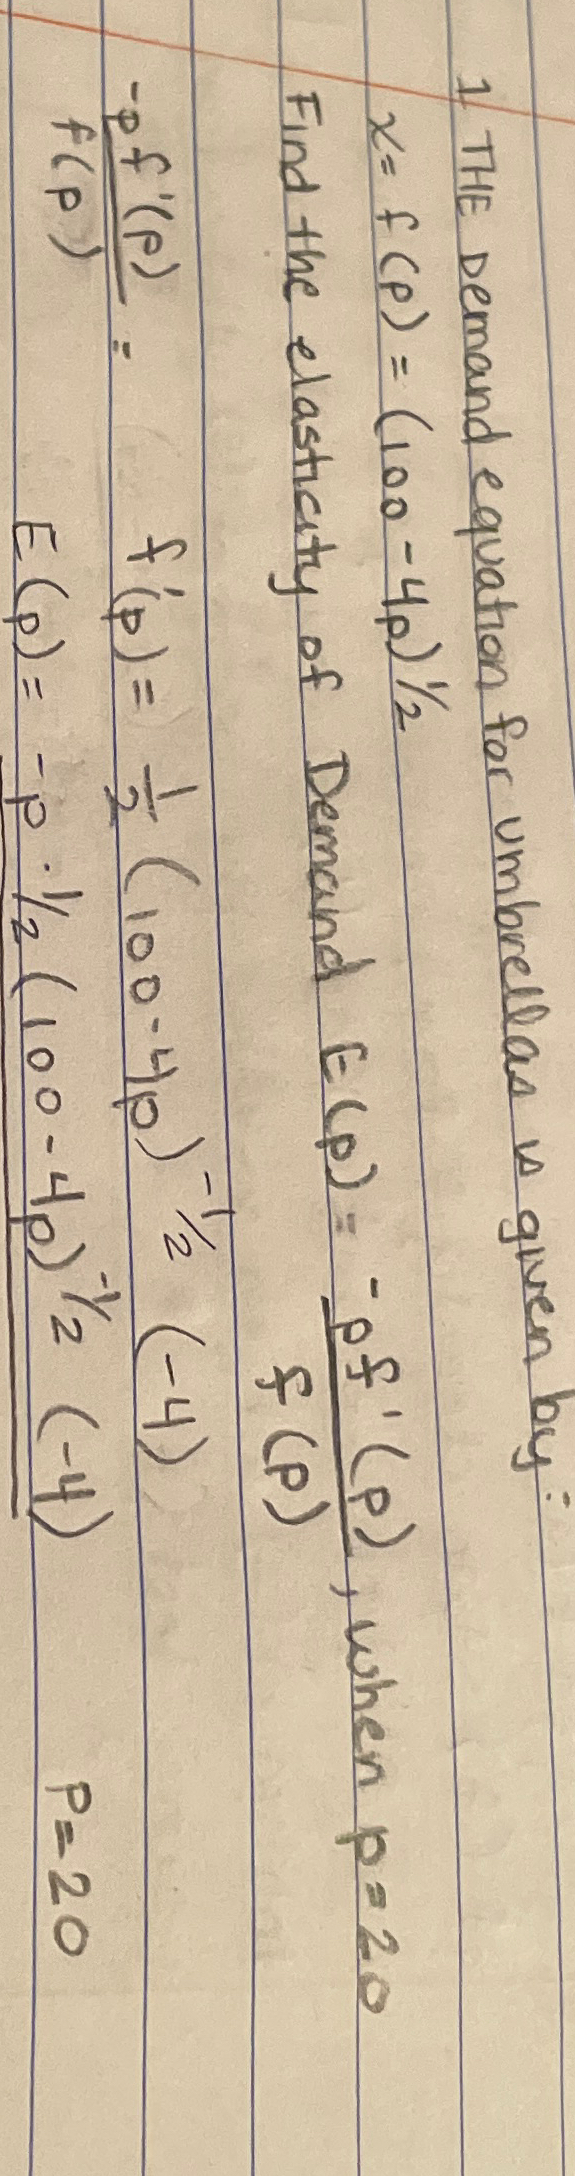 1 THE Demand equation for umbrellas is given by:
x = f(p) = (100 - 4p)^1/2
Find the elasticity of Demand E(p) = -pf'(p) / f(p), when p = 20
-pf'(p) / f(p) = f'(p) = 1/2 (100-4p)^-1/2 (-4)
E(p) = -p · 1/2 (100-4p)^-1/2 (-4) P=20